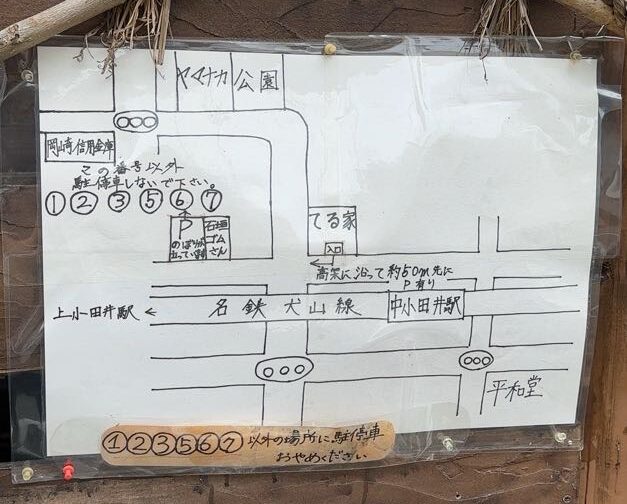 ヤマナカ 公園
岡崎信用金庫
この番号以外
駐停車しないで下さい。
①②③⑤⑥⑦
P
のぼりが
立っています
石垣
ゴム
さん
てる家
入口
高架に沿って約50m先に
P有り
上小田井駅 ← 名鉄犬山線 中小田井駅
平和堂
①②③⑤⑥⑦以外の場所に駐停車
おやめください